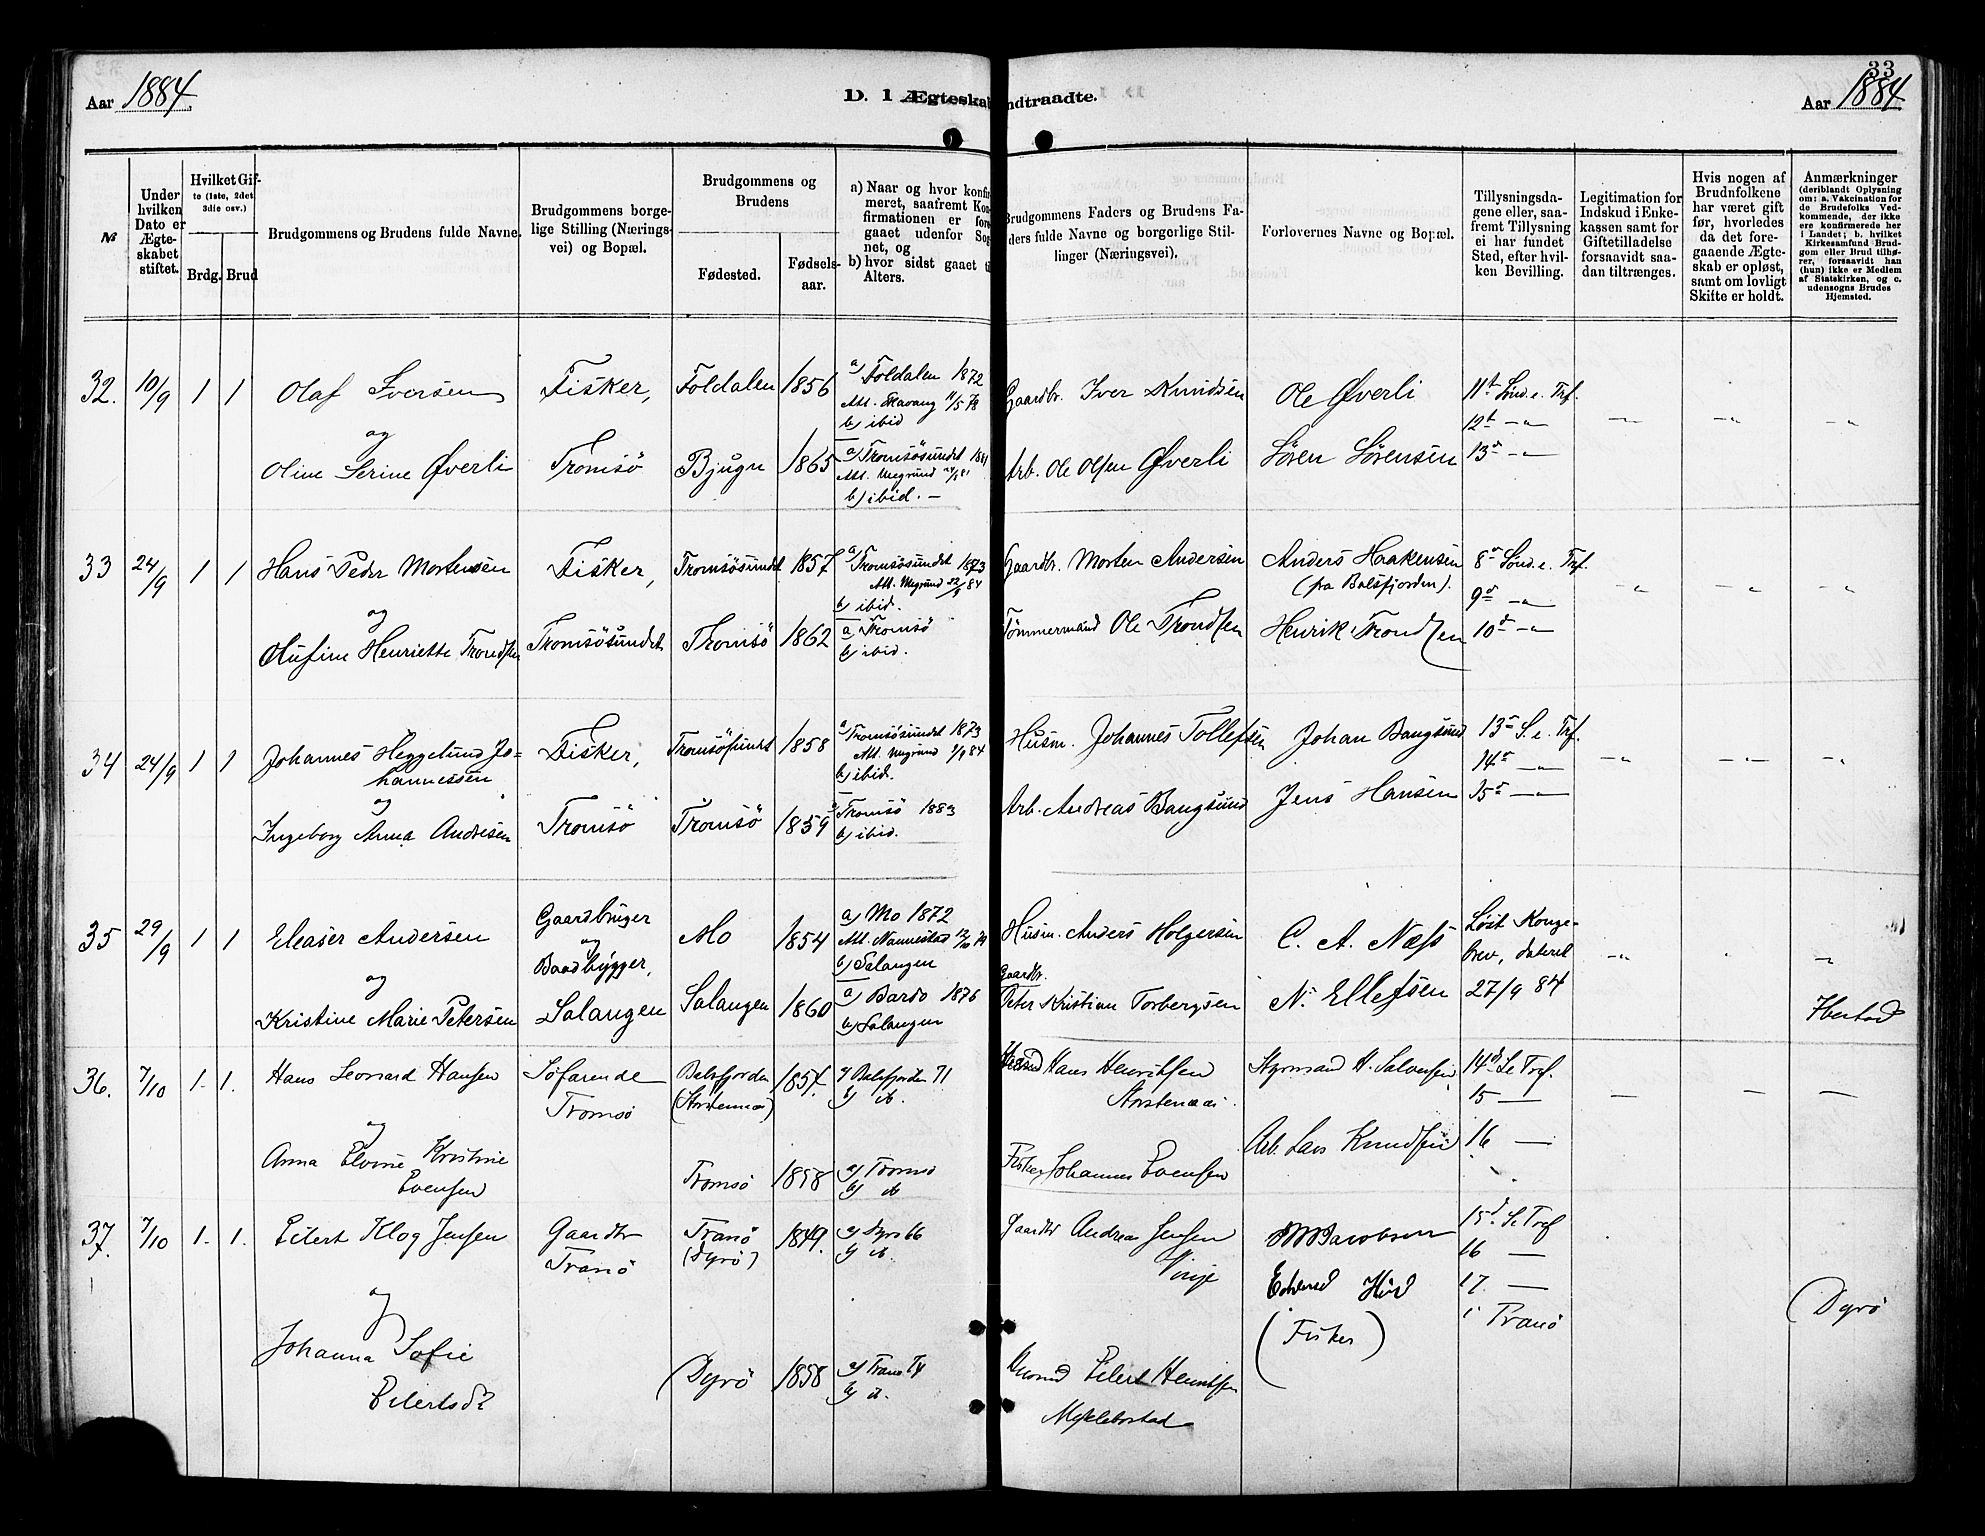 33
Aar 1884.
D. I Ægteskab Indtraadte.
Aar 1884
№
Under hvilken Dato er Ægteskabet stiftet.
Hvilket Gifte (1ste, 2det 3die osv.)
Brdg. Brud
Brudgommens og Brudens fulde Navne.
Brudgommens borgelige Stilling (Næringsvei) og Bopæl.
Brudgommens og Brudens
Fødested.
Fødselsaar.
a) Naar og hvor konfirmeret, saafremt Konfirmationen er foregaaet udenfor Sognet, og
b) hvor sidst gaaet til Alters.
Brudgommens Faders og Brudens Faders fulde Navne og borgerlige Stillinger (Næringsvei).
Forlovernes Navne og Bopæl.
Tillysningsdagene eller, saafremt Tillysning ei har fundet Sted, efter hvilken Bevilling.
Legitimation for Indskud i Enkekassen samt for Giftetilladelse forsaavidt saadan tiltrænges.
Hvis nogen af Brudnfolkene har været gift før, hvorledes da det foregaaende Ægteskab er opløst, samt om lovligt Skifte er holdt.
Anmærkninger
(deriblandt Oplysning om: a. Vakcination for de Brudefolks Vedkommende, der ikke ere konfirmerede her i Landet; b. hvilket Kirkesamfund Brudgom eller Brud tilhører, forsaavidt han (hun) ikke er Medlem af Statskirken, og c. udensogns Brudes Hjemsted.
32. 10/9 1 1 Olaf Iversen Fisker, Foldalen 1856 a) Foldalen 1872
b) ibid
Gaardbr. Iver Knudsen Ole Øverli 11te Sønd. e. Trf.
12t -"-
og
Oline Serine Øverli Tromsö Bjugn 1865 a) Tromsösundet 1881
b) ibid. -
Arb. Ole Olsen Øverli Sören Sörensen 13d -"-
33 24/9 1 1 Hans Peder Mortensen Fisker, Tromsösundet 1857 a) Tromsösundet 1873
Att. Megrund 22/9 84
b) ibid.
Gaardbr. Morten Andersen Anders Haakensen
(fra Balsfjorden).
8d Sönd. e. Trf.
9d -"-
og
Olufine Henriette Trondsen Tromsösundet Tromsö 1862 a) Tromsö
b) ibid.
Tömmermand Ole Trondsen Henrik Trondsen 10d -"-
34 24/9 1 1 Johannes Heggelund Johannessen Fisker, Tromsösundet 1858 a) Tromsösundet 1873
Att. Megrund 1/9 84
b) ibid.
Husm. Johannes Tollefsen Johan Bangsund 13d S. e. Trf.
14d -"-
og
Ingeborg Anna Andresen Tromsö Tromsö 1859 a) Tromsö 1883
b) ibid.
Arb. Andreas Bangsund Jens Hansen 15d -"-
35 29/9 1 1 Eleaser Andersen Gaardbruger
og
Baadbygger,
Mo 1854 a) Mo 1872
Att. Nannestad
b) Salangen
Husm. Anders Holgersen C. A. Næss Löst Kongebrev, dateret
og
Kristine Marie Petersen Salangen Salangen 1860 a) Bardo 1876
b) Salangen
Gaardbr.
Peter Kristian Torbergsen N. Ellefsen 27/9 84 Ibestad
36. 7/10 1. 1. Hans Leonard Hansen Söfarende
Tromsö
Balsfjorden
(Storstennæs)
1857. a) Balsfjorden 71
b) ib.
Hans Henriksen
Storstenæs.
Styrmand H. Salvesen 14d S e Tref.
15 —
og
Anna Elvine Kristine
Evensen
Tromsö 1858 a) Tromsö
b) ib
Fisker Johannes Evensen Arb. Lars Knudsen 16 —
37. 7/10 1. 1. Eilert Klog Jensen Gaardbr
Tranö
Tranö
(Dyrö)
1849. a) Dyrö 66
b) ib.
Gaardbr Andreas Jensen
Vinje
Jacobsen
Edvard Hird
(Fisker)
15d. S. e Tref
16 —
17. —
i Tranö
og
Johanna Sofie
Eilertsdt
(Dyrö 1858 a) Tranö 74
b) ib.
Eilert Henriksen
Myklebostad
(Dyrö